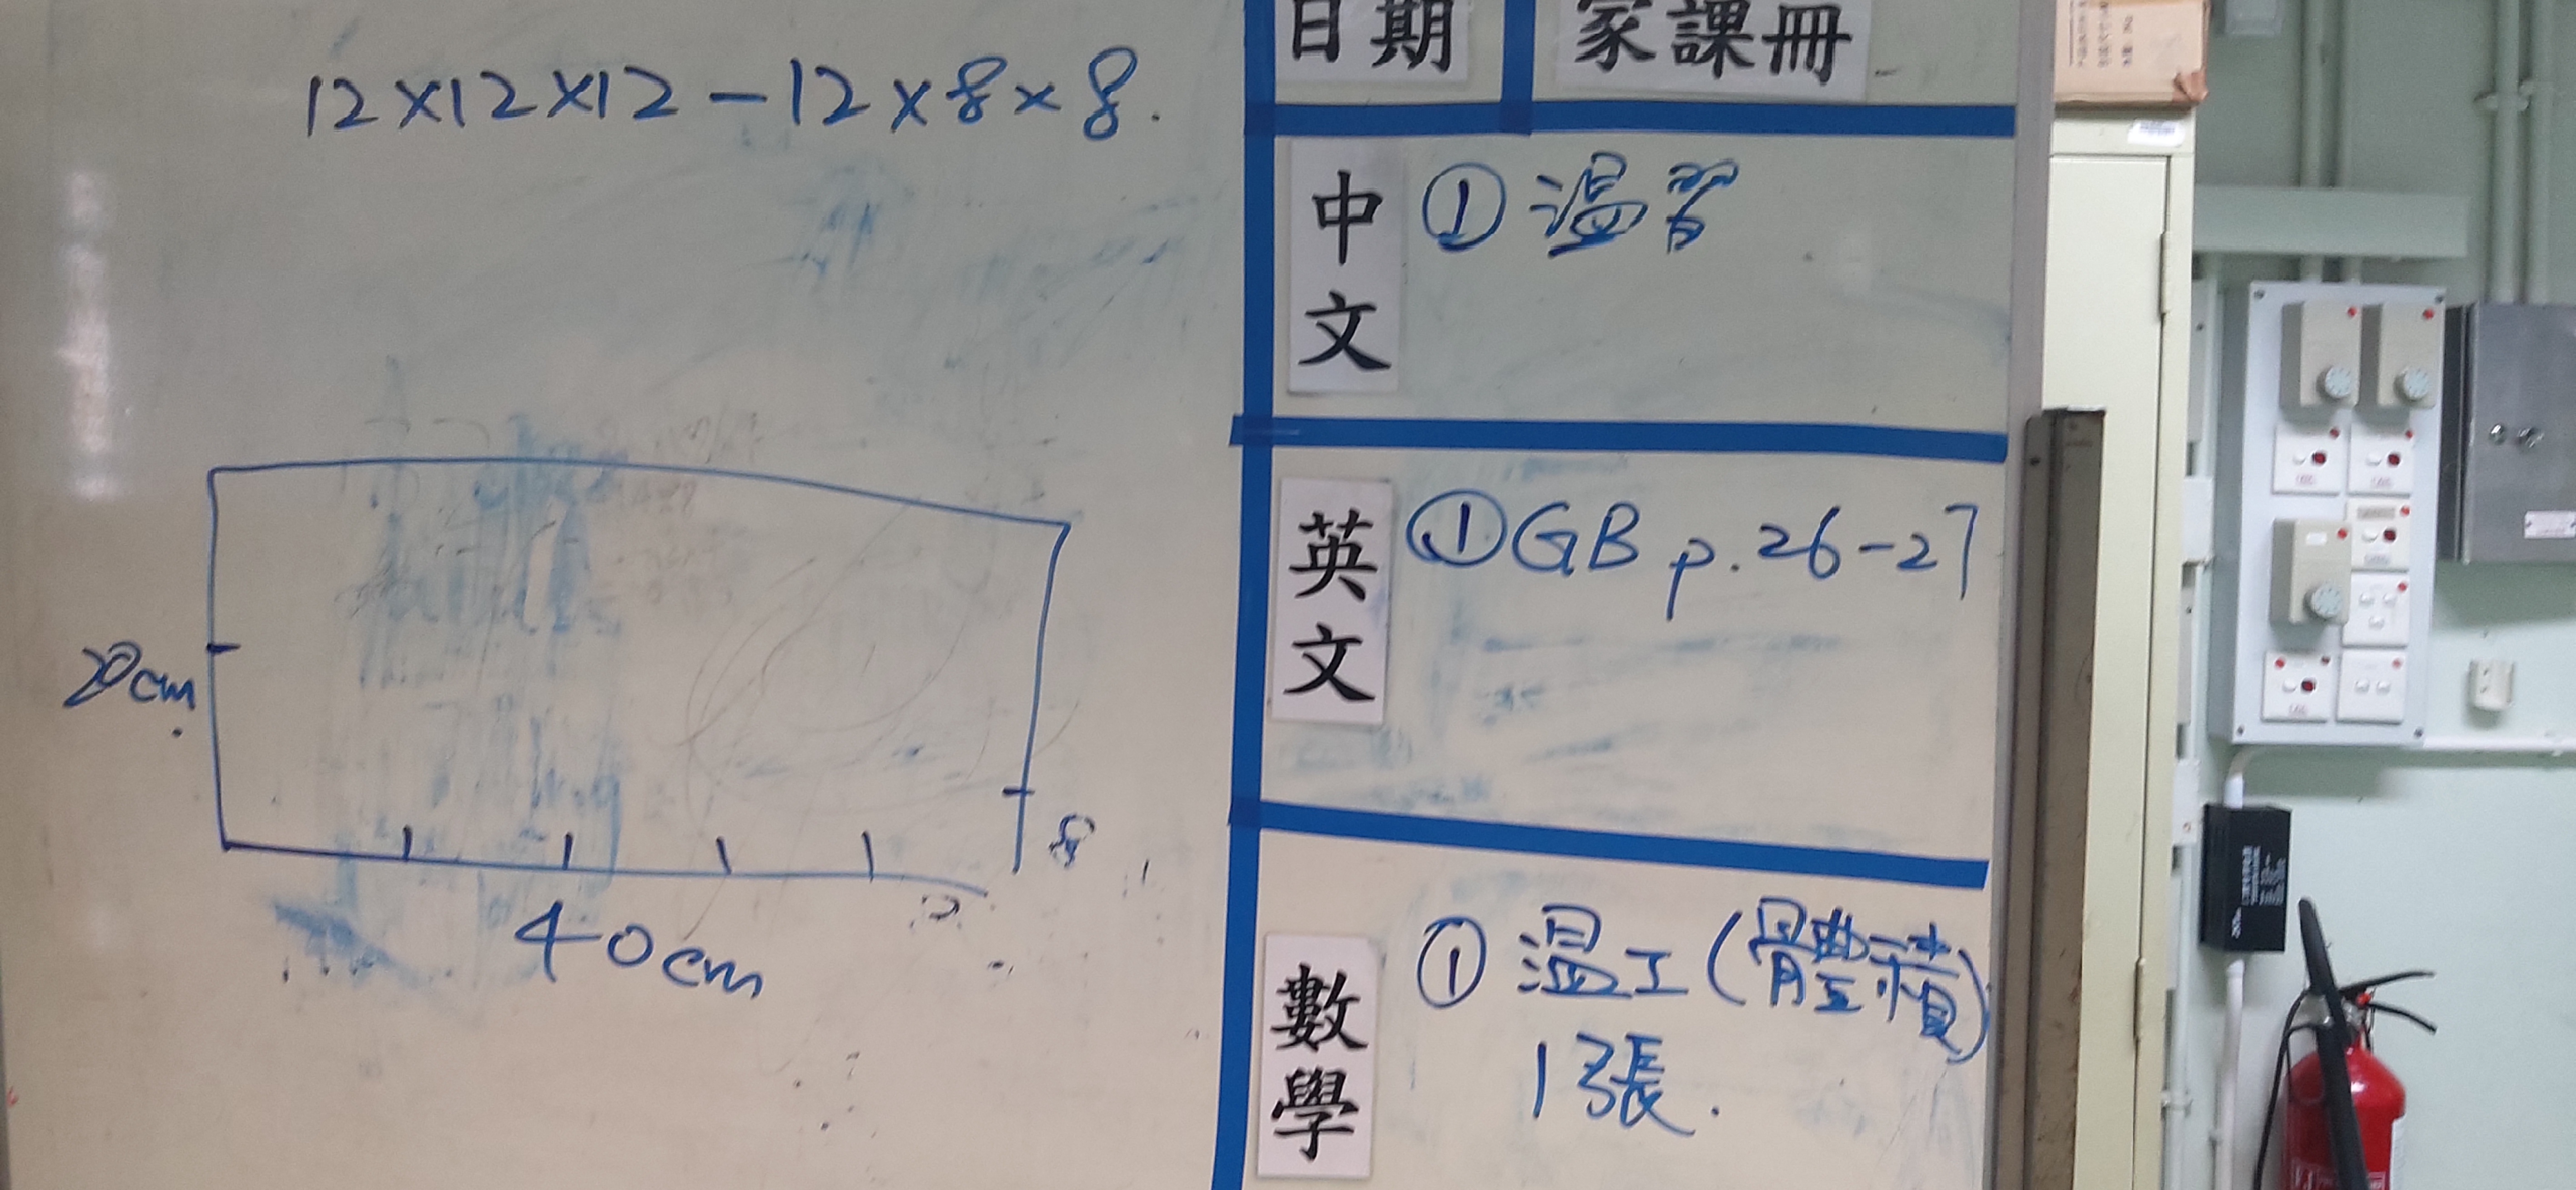 12×12×12-12×8×8.
20cm
8
40cm
日期
家課冊
中文
① 溫習
英文
① GB p.26-27
數學
① 溫工(體積)
1張.